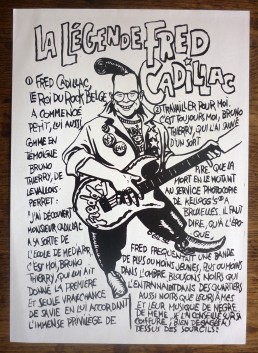 LA LÉGENDE FRED
CADILLAC
① FRED CADILLAC,
LE ROI DU ROCK BELGE
A COMMENCÉ
PETIT, LUI AUSSI
COMME EN
TÉMOIGNE
BRUNO
THIERRY, DE
LEVALLOIS-
PERRET:
"J'AI DÉCOUVERT
MONSIEUR CADILLAC
A LA SORTIE DE
L'ÉCOLE DE MEDIAPR,
C'EST MOI, BRUNO
THIERRY, QUI LUI AIT
DONNÉ LA PREMIÈRE
ET SEULE VRAIE CHANCE
DE SA VIE EN LUI ACCORDANT
L'IMMENSE PRIVILÈGE DE
② TRAVAILLER POUR MOI.
C'EST TOUJOURS MOI, BRUNO
THIERRY, QUI L'AI SAUVÉ
D'UN SORT
PIRE QUE LA
MORT EN LE MUTANT
AU SERVICE PHOTOCOPIE
DE KELLOGG'S® A
BRUXELLES. IL FAUT
DIRE, QU'A L'ÉPO-
QUE
FRED FRÉQUENTAIT UNE BANDE
DE PLUS OU MOINS JEUNES, QUI OU MOINS
DANS L'OMBRE, BLOUSONS NOIRS QUI
L'ENTRAINAIT DANS DES QUARTIERS
AUSSI NOIRS QUE LEURS ÂMES
ET LEUR MUSIQUE DE NÈGRE
DE MÊME. JE LUI CONSEILLE AUSSI SA
COIFFURE: BIEN DÉGAGÉE AU
DESSUS DES SOURCILS!
Fred